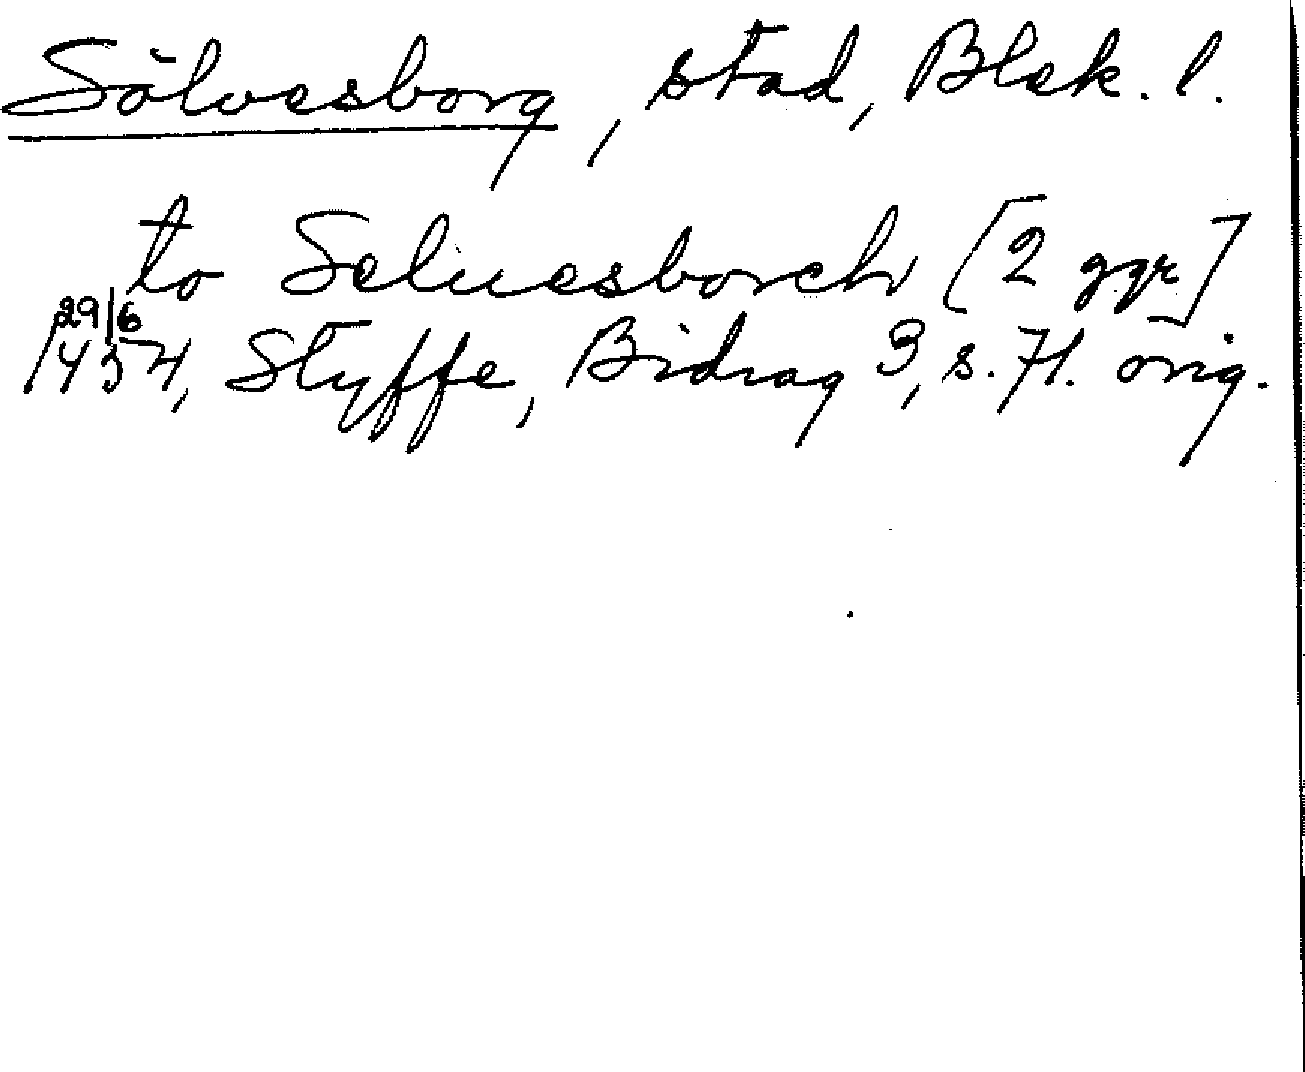 Sölvesborg, stad, Blek. l.
to Seluesborch [2 ggr]
29/6
1454, Styffe, Bidrag 3, s. 71. orig.